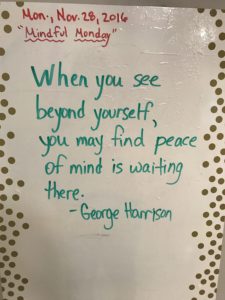 Mon., Nov. 28, 2016
"Mindful Monday"
When you see
beyond yourself,
you may find peace
of mind is waiting
there.
- George Harrison